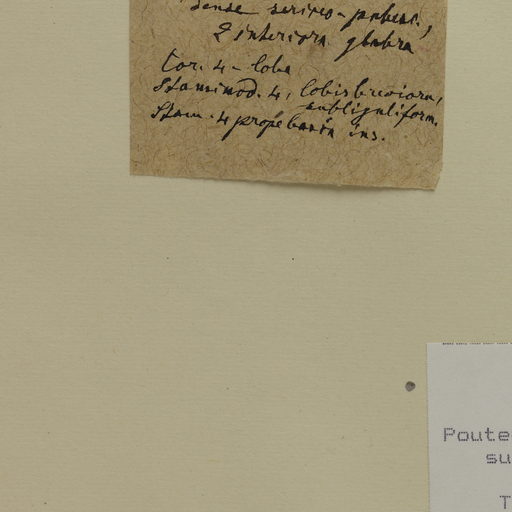 dense sericeo-pubesc.,
2 interiora glabra
Cor. 4-loba
Staminod. 4, lobis breviora,
subliguliform.
Stam. 4 prope basin ins.
Poute
su
T